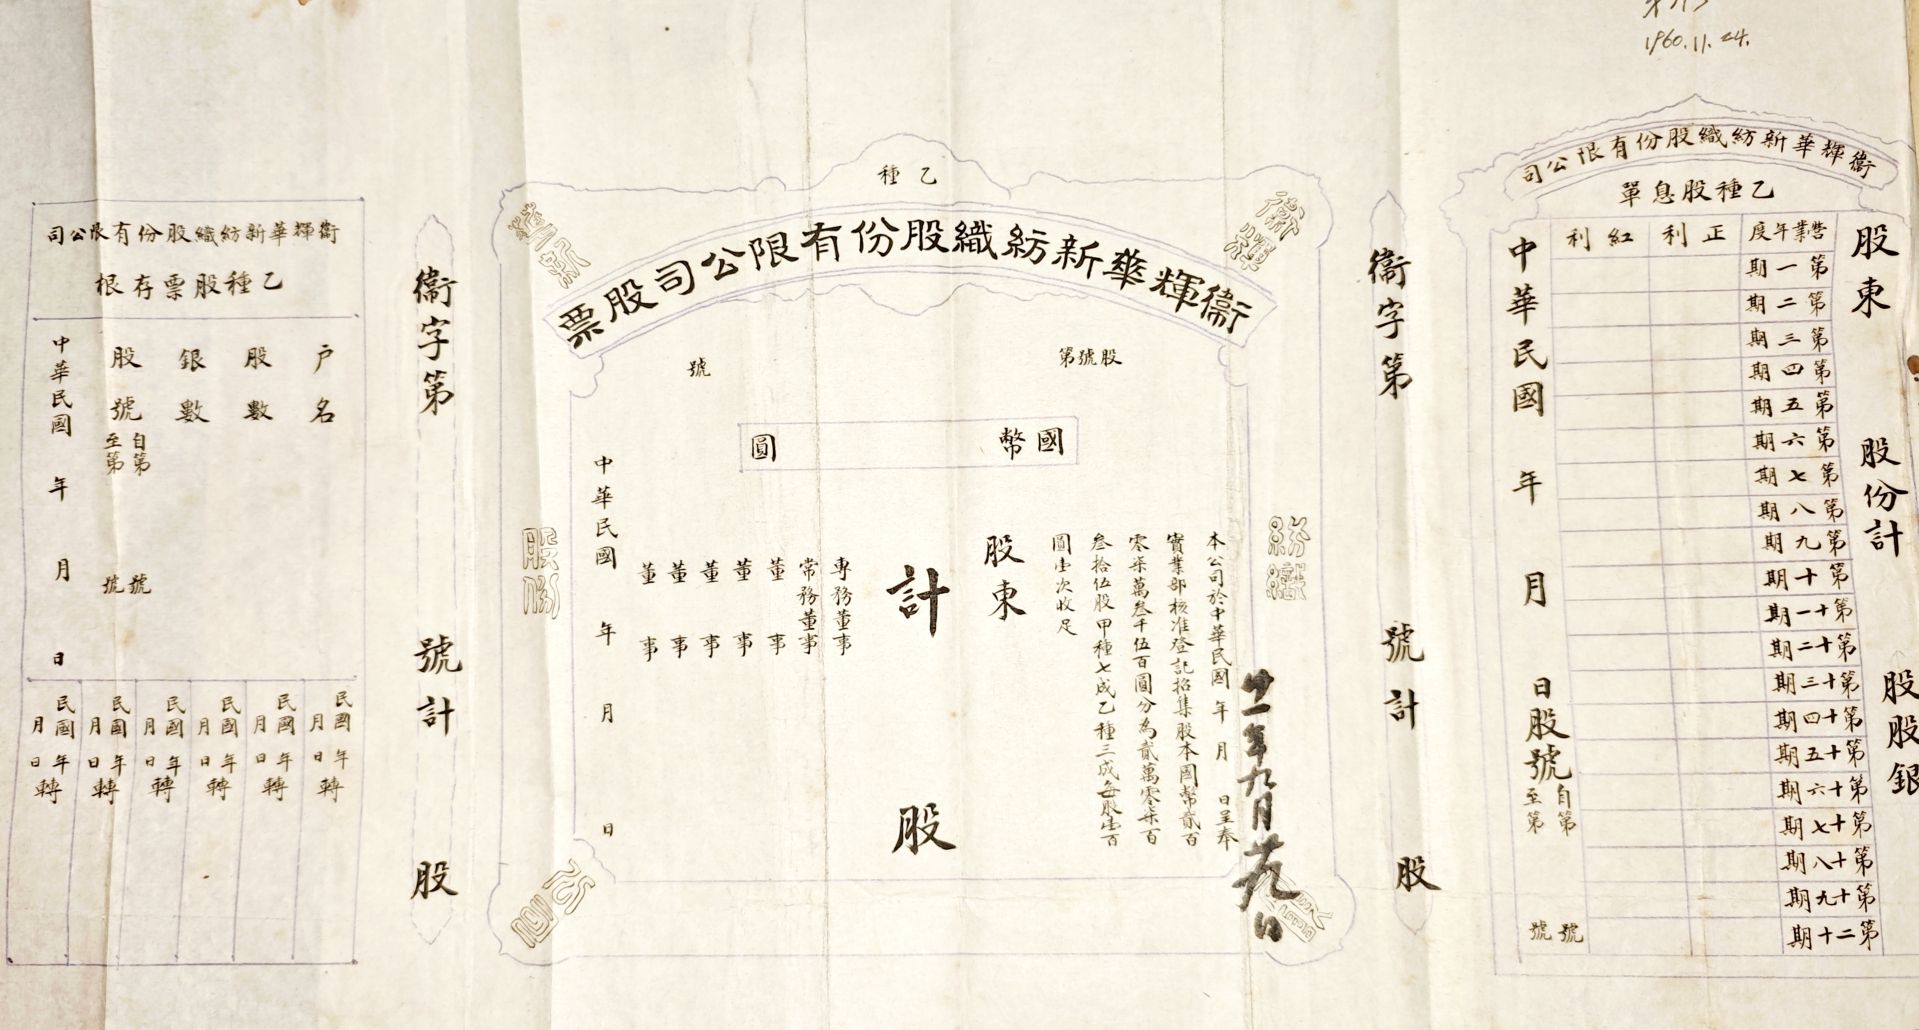 1960.11.24.
衞輝華新紡織股份有限公司
乙種股息單
股東
股份計
股股銀
營業年度
正利
紅利
第一期
第二期
第三期
第四期
第五期
第六期
第七期
第八期
第九期
第十期
第十一期
第十二期
第十三期
第十四期
第十五期
第十六期
第十七期
第十八期
第十九期
第二十期
中華民國年月日股號
自第號
至第號
衞字第號計股
乙種
衞輝
華新
紡織
股份
公司
衞輝華新紡織股份有限公司股票
股號第
號
國幣
圓
本公司於中華民國年月日呈奉
廿一年九月廿九日
實業部核准登記招集股本國幣貳百
零柒萬叁千伍百圓分為貳萬零柒百
叁拾伍股甲種七成乙種三成每股壹百
圓壹次收足
股東
計股
專務董事
常務董事
董事
董事
董事
董事
董事
中華民國年月日
衞字第號計股
衞輝華新紡織股份有限公司
乙種股票存根
户名
股數
銀數
股號
自第號
至第號
中華民國年月日
民國年月日轉
民國年月日轉
民國年月日轉
民國年月日轉
民國年月日轉
民國年月日轉